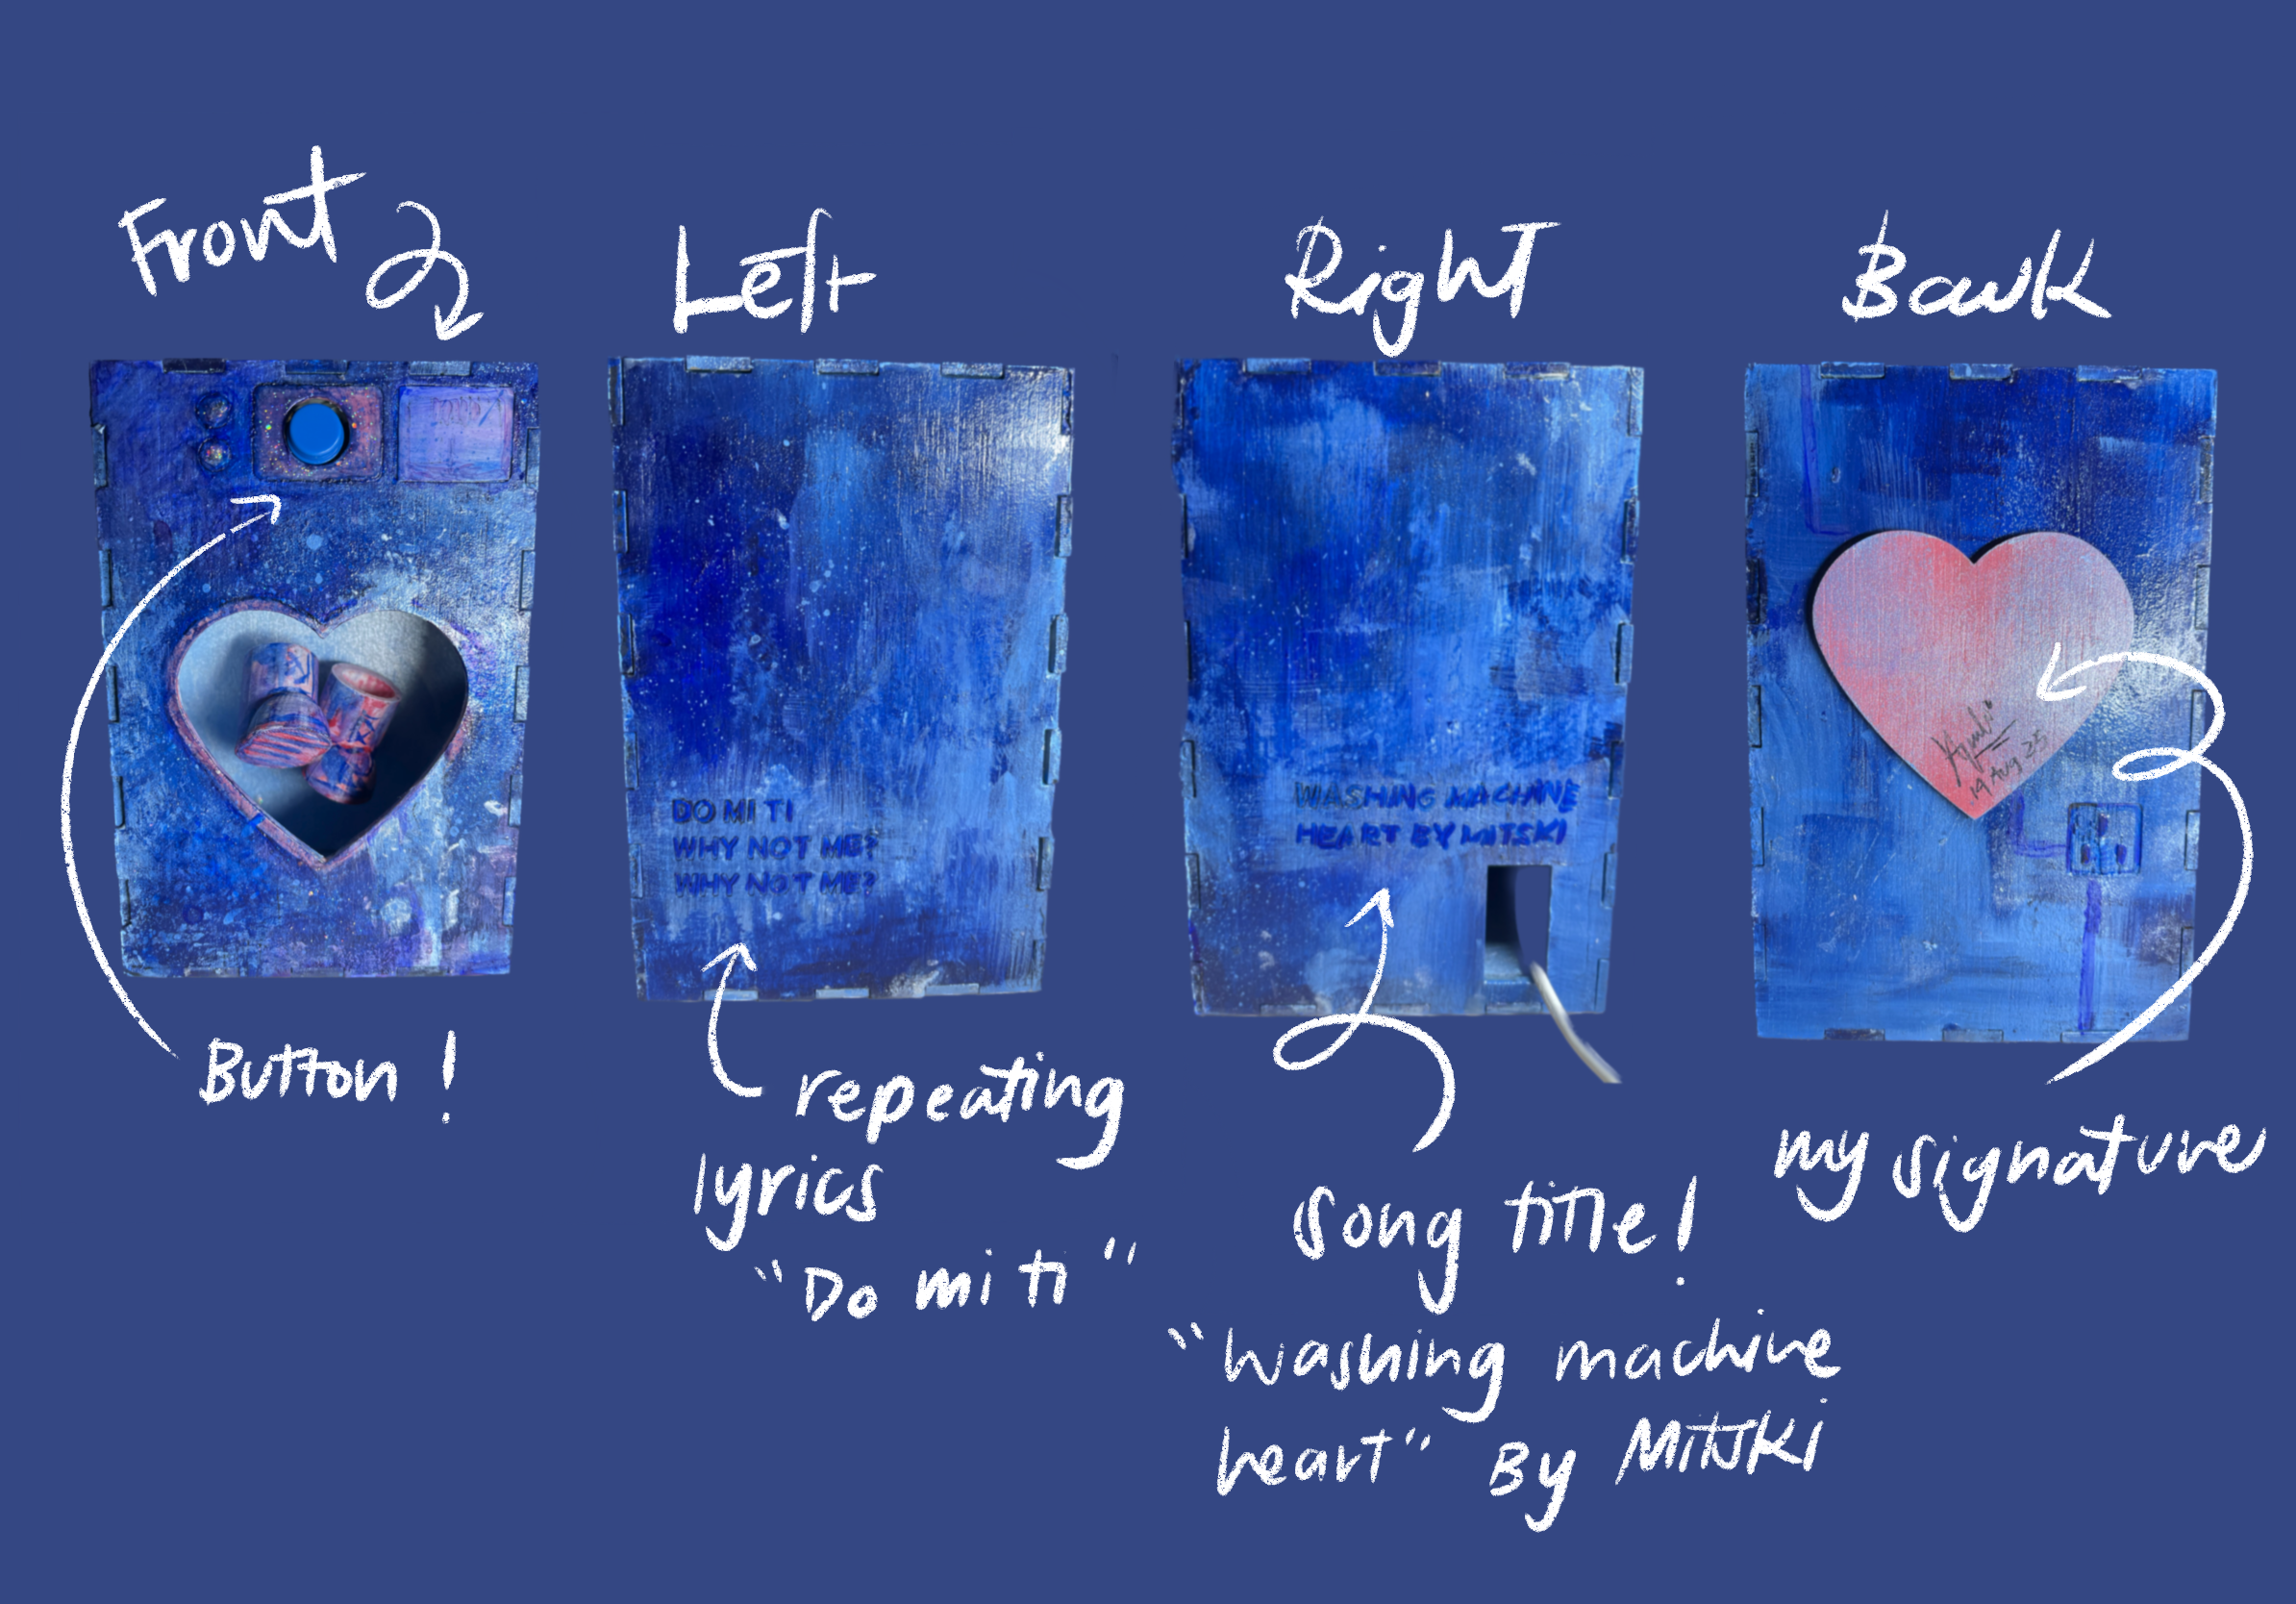 Front
Left
Right
Back
DO MI TI
WHY NOT ME?
WHY NOT ME?
WASHING MACHINE
HEART BY MITSKI
19 Aug 25
Button!
repeating
lyrics
"Do mi ti"
song title!
"washing machine
heart" By MITSKI
my signature